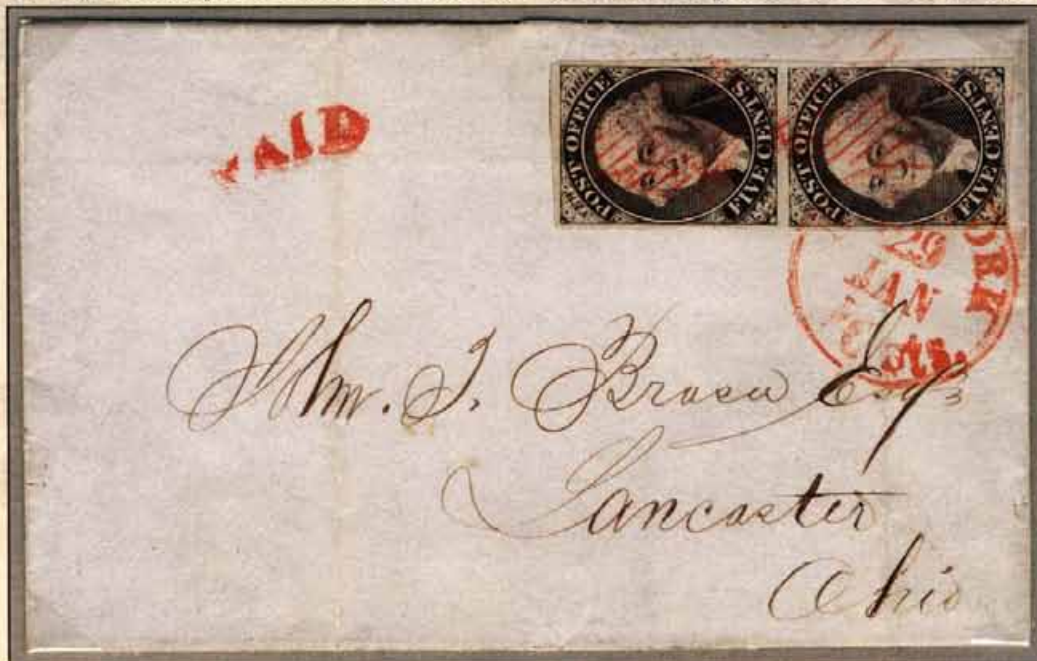 PAID
POST OFFICE
FIVE CENTS
POST OFFICE
FIVE CENTS
YORK
29
JAN
cts.
Wm. J. Brasee Esqr
Lancaster
Ohio